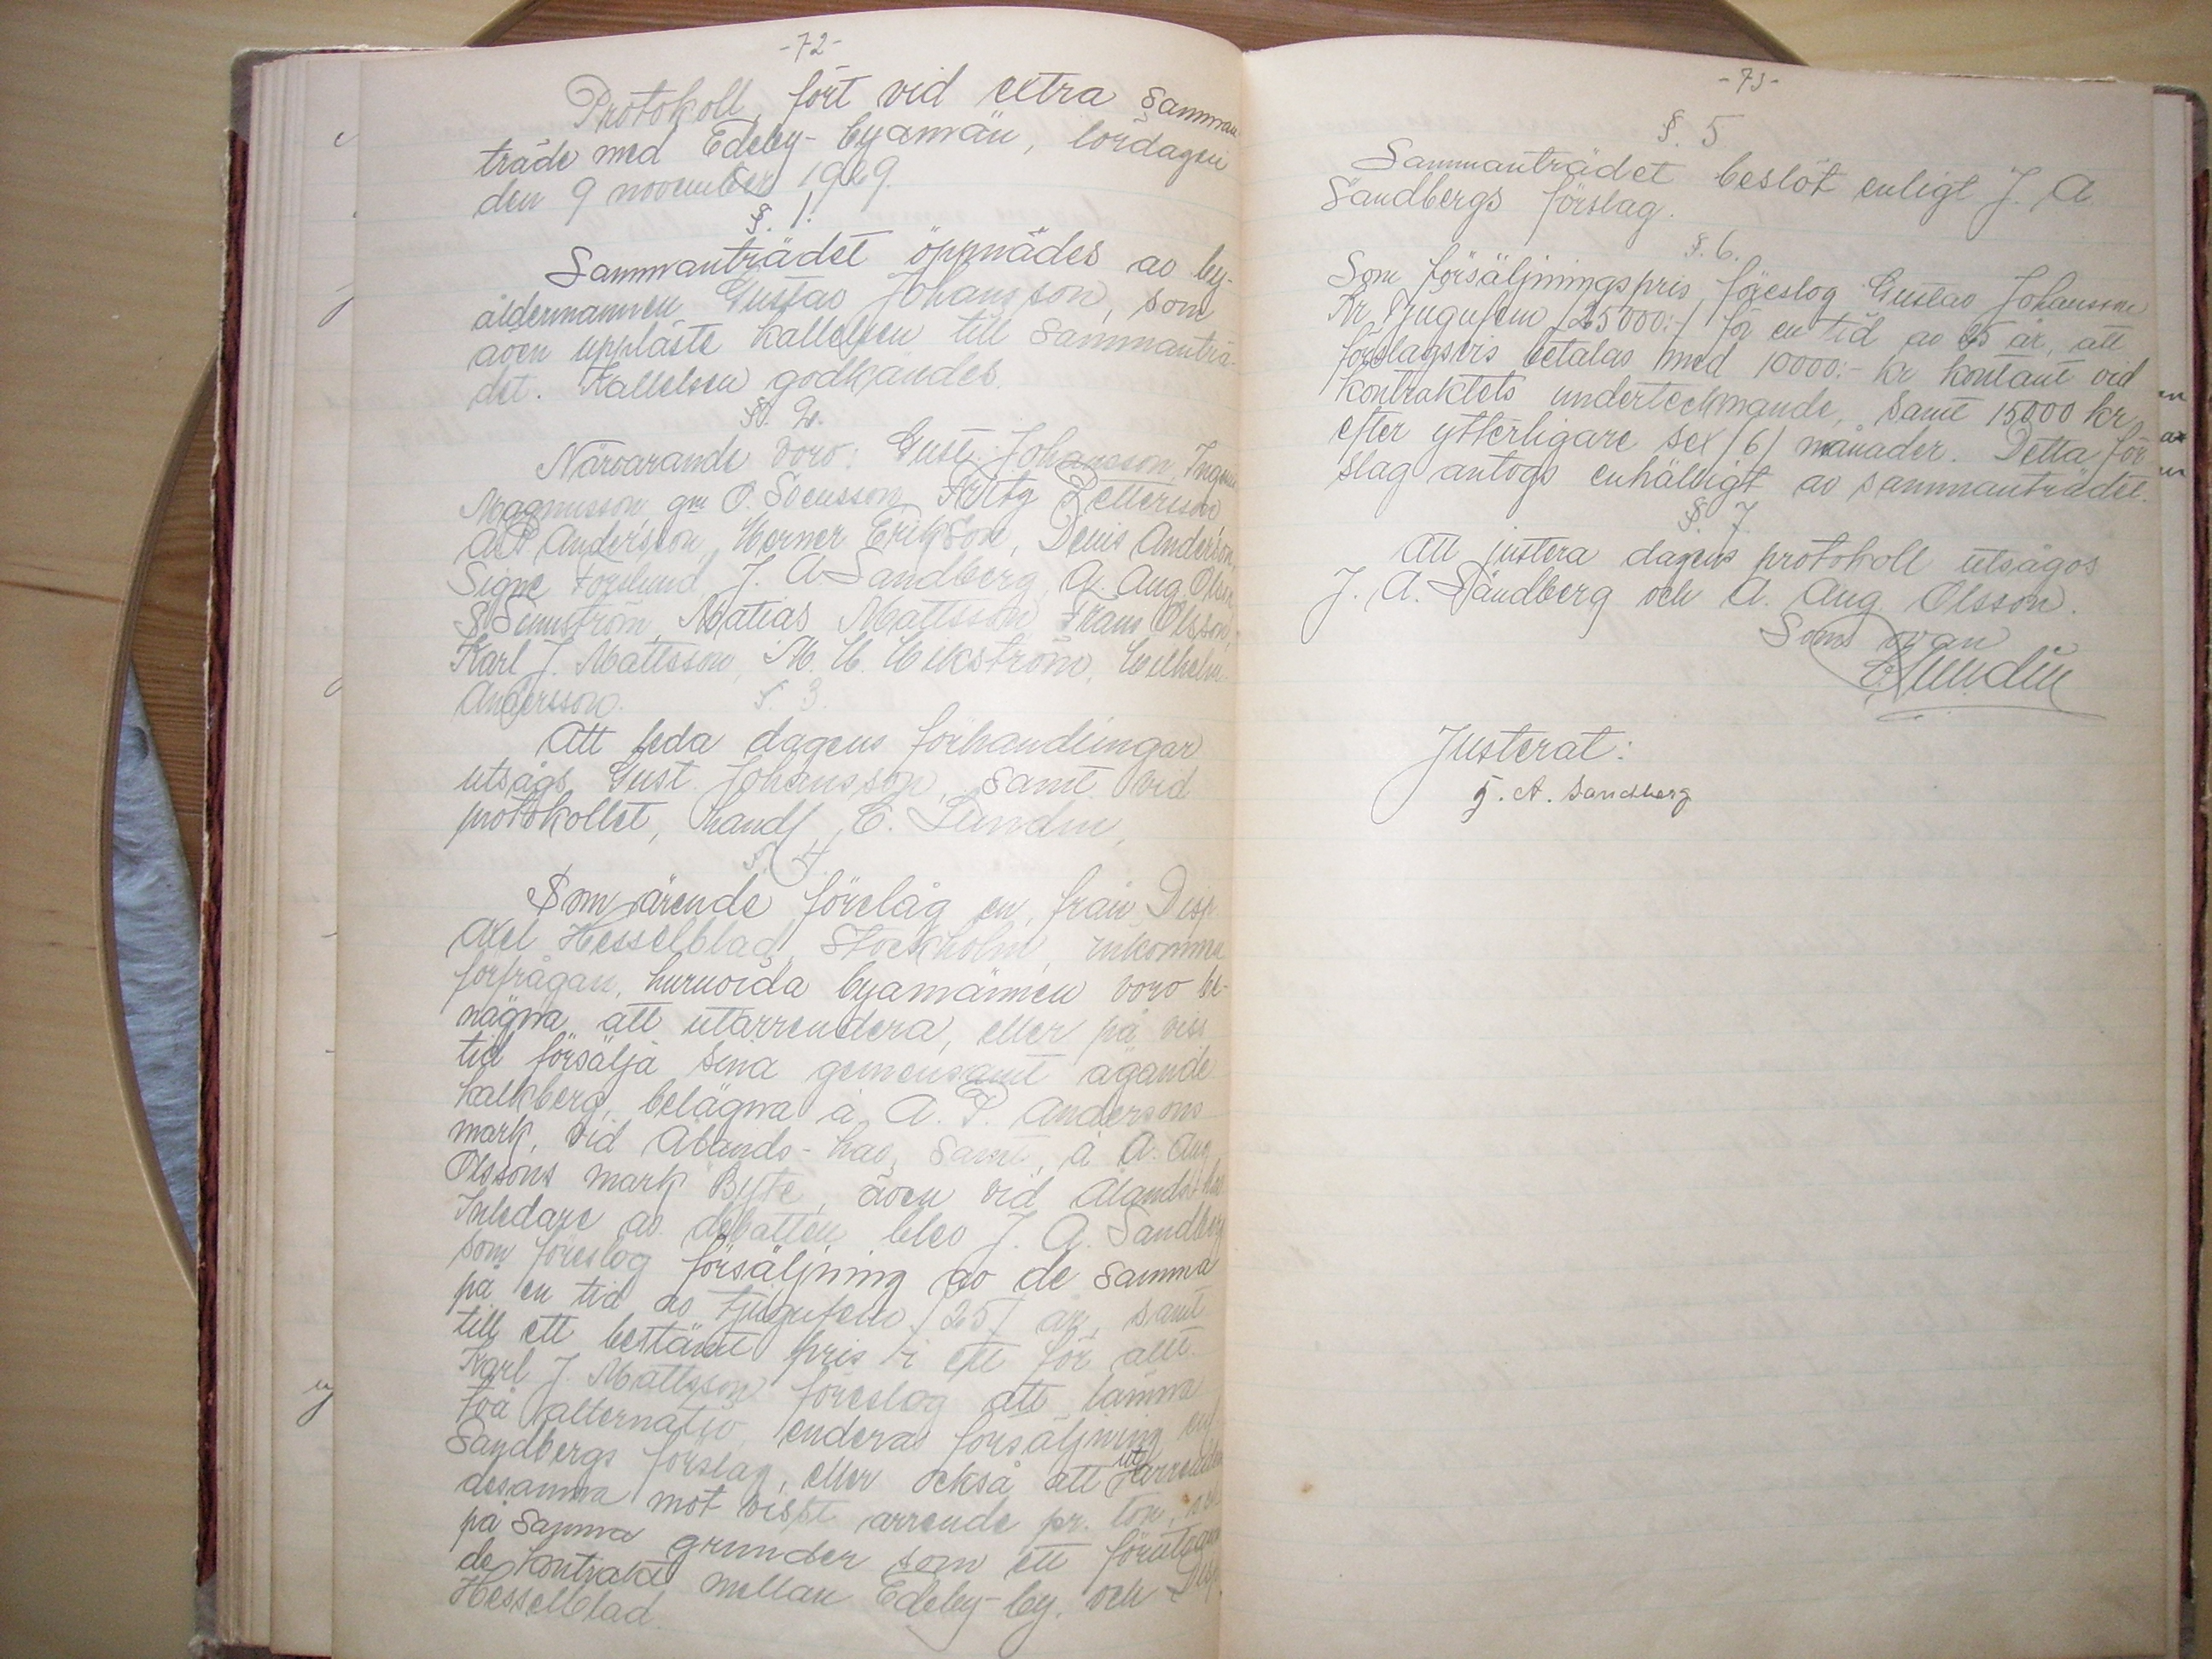 -72-
Protokoll, fört vid extra samman
träde med Edeby-byamän, lördagen
den 9 november 1929.
§. 1.
Sammanträdet öppnades av by-
åldermannen Gustav Johansson, som
även uppläste kallelsen till sammanträ-
det. Kallelsen godkändes.
§. 2.
Närvarande voro: Gust. Johansson,
Magnusson gm O. Svensson, Pettersson
A P Andersson, Verner Erikson, Denis Anderson,
Signe Forslund, J. A Sandberg, A. Aug. Olsson
S Sennström, Matias Mattsson, Frans Olsson,
Karl J. Mattsson, M. U. Wikström, Wilhelm
Andersson.
§. 3.
Att leda dagens förhandlingar
utsågs Gust. Johansson, samt vid
protokollet, handl. E. Lundin,
§. 4.
Som ärende förelåg en, från Disp.
Axel Hesselblad, Stockholm, inkommen
förfrågan, huruvida byamännen voro be-
nägna att utarrendera, eller på viss
tid försälja sina gemensamt ägande
kalkberg, belägna å A. P. Andersons
mark, vid Ålands-hav, samt, å A. Aug
Olssons mark Byte, även vid Ålands hav
Inledare av debatten blev J. A. Sandberg
som föreslog försäljning av de samma
på en tid av tjugufem /25/ år, samt
till ett bestämt pris i ett för allt.
Karl J. Mattsson föreslog att lämna
två alternativ, enderas försäljning enl.
Sandbergs förslag, eller också att utarrendera
desamma mot visst arrende pr. ton, och
på samma grunder som ett
de kontrakt mellan Edeby-by. och Disp.
Hesselblad.
-73-
§. 5
Sammanträdet beslöt enligt J. A
Sandbergs förslag.
§. 6.
Som försäljningspris, föreslog Gustav Johansson
Kr. Tjugufem /25000:-/ för en tid av 25 år, att
förslagsvis betalas med 10000:- kr kontant vid
kontraktets undertecknande, samt 15000 kr
efter ytterligare sex /6/ månader. Detta för
slag antogs enhälligt av sammanträdet.
§. 7.
Att justera dagens protokoll utsågos
J. A. Sandberg och A. Aug. Olsson.
Som ovan
E. Lundin
Justerat:
J. A. Sandberg